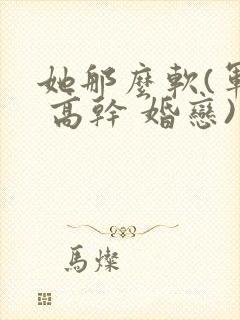 她那麼軟(軍
高幹 婚戀)
馬燦